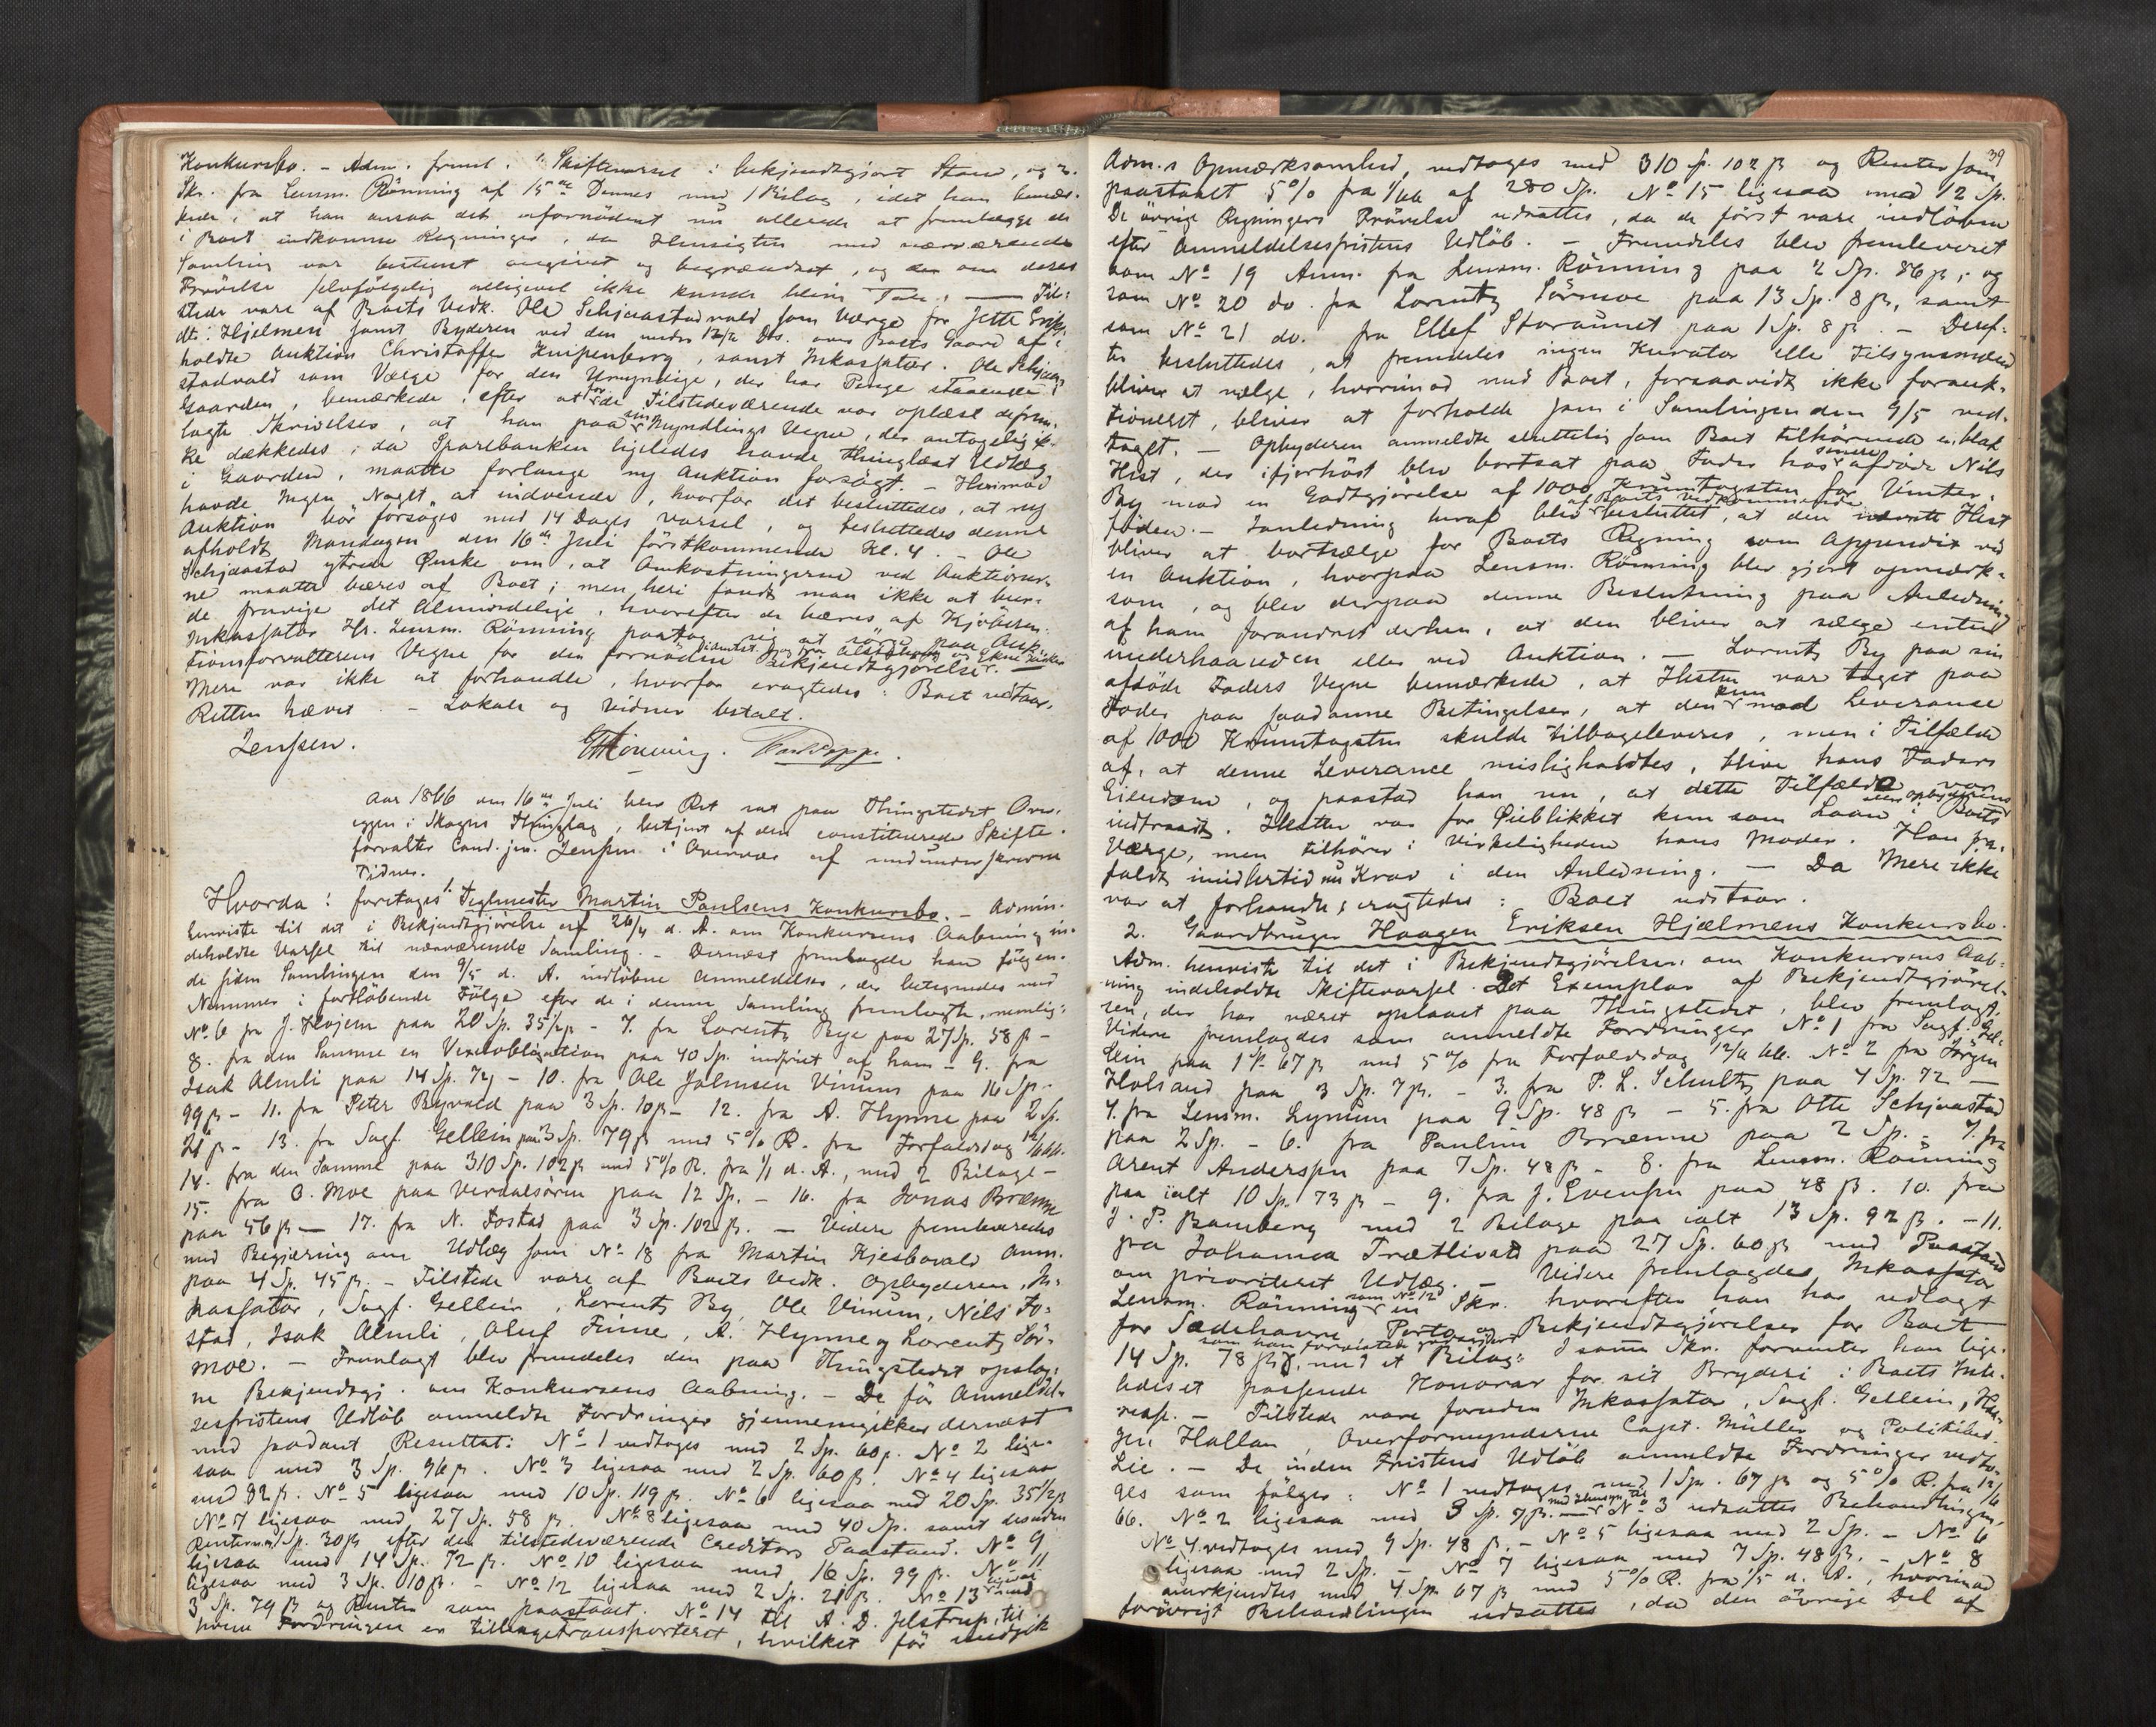 Konkursbo. - Adm. freml. 1. Skiftevarsel i bekjendtgjort Stand, og 2.
Skr. fra Lensm. Rönning af 15de Dennes med 1 Bilag, idet han bemær-
kede, at han ansaa det ufornödent nu allerede at fremlægge de
i Boet indkomne Regninger, da Hensigten med nærværende
Samling var bestemt angivet og begrændset, og der om deres
Prövelse selvfölgelig alligevel ikke kunde blive Tale. — Til-
stede vare af Boets Vedk. Ole Schjaastadvald som Værge for Jette Eriks-
dtr Hjelmen samt Byderen ved den under 12/6 ds. over Boets Gaard af-
holdte Auktion Christoffer Knipenberg, samt Inkassator. Ole Schjaa-
stadvald som Værge for den Umyndige, der har Penge staaende i
Gaarden, bemærkede, efter at for de Tilstedeværende var oplæst de frem-
lagte Skrivelser, at han paa sin Myndlings Vegne, der antagelig ik-
ke dækkedes, da Sparebanken ligeledes havde thinglæst Udlæg
i Gaarden, maatte forlange ny Auktion forsögt. - Herimod
havde Ingen Noget at indvende, hvorfor det besluttedes, at ny
Auktion bör forsöges med 14 Dages Varsel, og besluttedes denne
afholdt Mandagen den 16de Juli förstkommende Kl. 4. - Ole
Schjaastad ytrede Ønske om, at Omkostningerne ved Auktioner-
ne maatte bæres af Boet; men heri fandt man ikke at bur-
de fravige det Almindelige, hvorefter de bæres af Kjöberen.
Inkassator Hr. Lensm. Rönning paatog sig at sörge paa Auk-
tionsforvalterens Vegne for den fornödne Bekjendtgjörelse.
Mere var ikke at forhandle, hvorfor eragtedes: Boet udstaar.
Retten hævet. - Lokale og Vidner betalt.
Jenssen. Rönning.
Aar 1866 den 16de Juli blev Ret sat paa Thingstedet Over-
eggen i Skogns Thinglag, betjent af den constituerede Skifte-
forvalter Cand. jur. Jenssen i Overvær af medunderskrevne
Vidner.
Hvorda: foretoges 1. Teglmester Martin Paulsens Konkursbo. - Admin.
henviste til det i Bekjendtgjörelse af 26/4 d. A. om Konkursens Aabning in-
deholdte Varsel til nærværende Samling. - Dernæst fremlagde han fölgen-
de siden Samlingen den 9/5 d. A. indlöbne Anmeldelser, der betegnedes med
Nummer i fortlöbende Fölge efter de i denne Samling fremlagte, nemlig:
No 6 fra J. Hojem paa 20 Sp. 35 1/2 ß - 7. fra Lorentz Bye paa 27 Sp. 58 ß -
8. fra den Samme en Vexelobligation paa 40 Sp. indfriet af ham - 9. fra
Isak Almli paa 14 Sp. 72 ß - 10. fra Ole Johnsen Vinum paa 16 Sp.
99 ß - 11. fra Peter Byvald paa 3 Sp. 10 ß - 12. fra A. Hynne paa 2 Sp.
21 ß - 13. fra Sagf. Gellein paa 3 Sp. 79 ß med 5 % R. fra Forfaldsdag 12/6 66.
14. fra den Samme paa 310 Sp. 102 ß med 5 % R. fra 1/1 d. A., med 2 Bilage -
15. fra O. Moe paa Verdalsören paa 12 Sp. - 16. fra Jonas Brænne
paa 56 ß — 17. fra N. Fostad paa 3 Sp. 102 ß. - Videre fremleveredes
med Begjæring om Udlæg som No 18 fra Martin Kjesbovald Anm.
paa 4 Sp. 45 ß. - Tilstede vare af Boets Vedk. Opbyderen, In-
kassator, Sagf. Gellein, Lorentz By, Ole Vinum, Nils Fo-
stad, Isak Almli, Oluf Finne, A. Hynne og Lorentz Sör-
moe. - Fremlagt blev fremdeles den paa Thingstedet opslag-
ne Bekjendtgj. om Konkursens Aabning. - De för Anmeldel-
sesfristens Udlöb anmeldte Fordringer gjennemgikkes dernæst
med saadant Resultat: No 1 vedtoges med 2 Sp. 60 ß. No 2 lige-
saa med 3 Sp. 96 ß. No 3 ligesaa med 2 Sp. 60 ß. No 4 ligesaa
med 92 ß. No 5 ligesaa med 10 Sp. 119 ß. No 6 ligesaa med 20 Sp. 35 1/2 ß
No 7 ligesaa med 27 Sp. 58 ß. No 8 ligesaa med 40 Sp. samt desuden
Renter m. 1 Sp. 30 ß efter den tilstedeværende Creditors Paastand. No 9
ligesaa med 14 Sp. 72 ß. No 10 ligesaa med 16 Sp. 99 ß. No 11
ligesaa med 3 Sp. 10 ß. - No 12 ligesaa med 2 Sp. 21 ß. No 13 ligesaa med
3 Sp. 79 ß og Renter som paastaaet. No 14 til A. D. Jelstrup, til
hvem Fordringen er tilbagetransporteret, hvilket för undgik
39
Adm.s Opmærksomhed, vedtoges med 310 Sp. 102 ß og Renter som
paastaaet 5 % fra 1/1 66 af 280 Sp. No 15 ligesaa med 12 Sp.
De övrige Regningers Prövelse udsattes, da de först vare indlöbne
efter Anmeldelsesfristens Udlöb. - Fremdeles blev fremleveret
som No 19 Anm. fra Lensm. Rönning paa 2 Sp. 86 ß, og
som No 20 do. fra Lorentz Sörmoe paa 13 Sp. 8 ß, samt
som No 21 do. fra Ellef Storaunet paa 1 Sp. 8 ß. - Deref-
ter besluttedes, at fremdeles ingen Kurator eller Tilsynsmænd
bliver at vælge, hvorimod med Boet, forsaavidt ikke forauk-
tioneret, bliver at forholde som i Samlingen den 9/5 ved-
taget. - Opbyderen anmeldte sluttelig som Boet tilhörende en blak
Hest, der ifjorhöst blev bortsat paa Foder hos senere afdöde Nils
By mod en Godtgjörelse af 1000 Krumtagsten for Vinter-
föden. - I Anledning heraf blev af Boets Vedkommende besluttet, at den nævnte Hest
bliver at bortsælge for Boets Regning som Appendix ved
en Auktion, hvorpaa Lensm. Rönning blev gjort opmærk-
som, og blev derpaa denne Beslutning paa Anledning
af ham forandret derhen, at den bliver at sælge enten
underhaanden eller ved Auktion. — Lorentz By paa sin
afdöde Faders Vegne bemærkede, at Hesten var taget paa
Foder paa saadanne Betingelser, at den kun mod Leverance
af 1000 Krumtagsten skulde tilbageleveres, men i Tilfælde
af, at denne Leverance misligholdtes, blive hans Faders
Eiendom, og paastod han nu, at dette Tilfælde var
indtraadt. Hesten var for Øieblikket kun som Laan i Boets eller Opbyderens
Værge, men tilhörer i Virkeligheden hans Moder. Han fra-
faldt imidlertid nu Krav i den Anledning. — Da Mere ikke
var at forhandle, eragtedes: Boet udstaar.
2. Gaardbruger Haagen Eriksen Hjælmens Konkursbo.
Adm. henviste til det i Bekjendtgjörelsen om Konkursens Aab-
ning indeholdte Skiftevarsel. Det Exemplar af Bekjendtgjörel-
sen, der har været opslaaet paa Thingstedet, blev fremlagt.
Videre fremlagdes som anmeldte Fordringer No 1 fra Sagf. Gel-
lein paa 1 Sp. 67 ß med 5 % fra Forfaldsdag 12/6 66. No 2 fra Jörgen
Holsand paa 3 Sp. 7 ß. - 3. fra P. L. Schultz paa 4 Sp. 72 —
4. fra Lensm. Lynum paa 9 Sp. 48 ß - 5. fra Otte Schjaastad
paa 2 Sp. - 6. fra Pauline Brænne paa 2 Sp. - 7. fra
Arent Anderssen paa 7 Sp. 48 ß - 8. fra Lensm. Rönning
paa ialt 10 Sp. 73 ß - 9. fra J. Evensen paa 48 ß. 10. fra
J. P. Bamberg med 2 Bilage paa ialt 13 Sp. 92 ß. - 11.
fra Johanna Trætlivald paa 27 Sp. 60 ß med Paastand
om prioriteret Udlæg. - Videre fremlagdes Inkassator
Lensm. Rönning som No 12 en Skr. hvorefter han har udlagt
for Sædehavre, Porto og Bekjendtgjörelser for Boet
14 Sp. 78 ß, med et Bilag. I samme Skr. forventer han lige-
ledes et passende Honorar for sit Bryderi i Boets Inte-
resse. - Tilstede vare foruden Inkassator, Sagf. Gellein, Haa-
gen Hallan, Overformynderne Capt. Müller og Politibetj.
Lie. - De inden Fristens Udlöb anmeldte Fordringer vedto-
ges som fölger: No 1 vedtoges med 1 Sp. 67 ß og 5 % R. fra 12/6
66. No 2 ligesaa med 3 Sp. 7 ß. - med Hensyn til No 3 udsattes Behandlingen,
No 4 vedtoges med 9 Sp. 48 ß. - No 5 ligesaa med 2 Sp. - No 6
ligesaa med 2 Sp. - No 7 ligesaa med 7 Sp. 48 ß. - No 8
anerkjendtes med 4 Sp. 67 ß med 5 % R. fra 1/5 d. A., hvorimod
forövrigt Behandlingen udsattes, da den övrige Del af